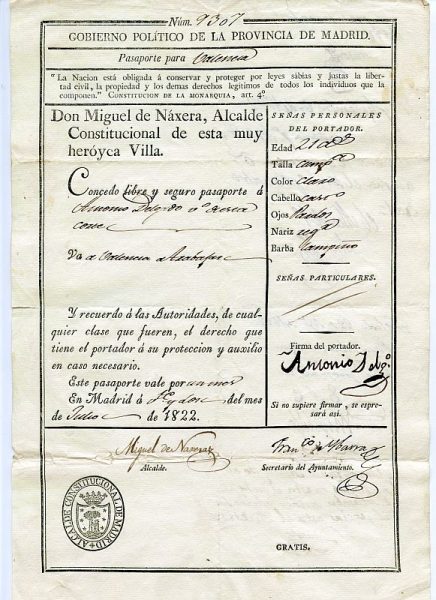 Núm. 9307
GOBIERNO POLÍTICO DE LA PROVINCIA DE MADRID.
Pasaporte para Valencia
"La Nacion está obligada á conservar y proteger por leyes sábias y justas la liber-
tad civil, la propiedad y los demas derechos legítimos de todos los individuos que la
componen." CONSTITUCION DE LA MONARQUIA, art. 4º.
Don Miguel de Náxera, Alcalde
Constitucional de esta muy
heróyca Villa.
Concedo libre y seguro pasaporte á
Antonio Delgado
Va a Valencia
Y recuerdo á las Autoridades, de cual-
quier clase que fueren, el derecho que
tiene el portador á su proteccion y auxilio
en caso necesario.
Este pasaporte vale por un mes
En Madrid á del mes
de Julio de 1822.
SEÑAS PERSONALES
DEL PORTADOR.
Edad 21 as
Talla
Color claro
Cabello
Ojos Pardos
Nariz
Barba Lampiño
SEÑAS PARTICULARES.
Firma del portador.
Antonio Delgo
Si no supiere firmar, se espre-
sará así.
Miguel de Naxera
Alcalde.
Franco de Ybarra
Secretario del Ayuntamiento.
ALCALDE CONSTITUCIONAL DE MADRID
GRATIS.